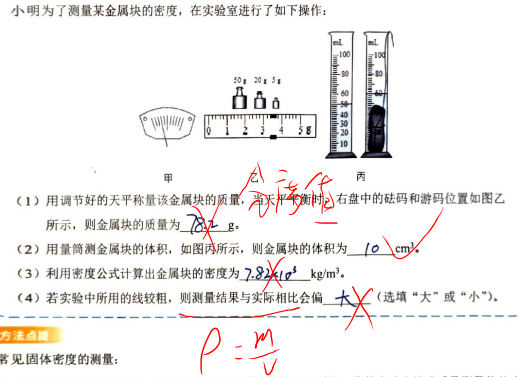 小明为了测量某金属块的密度，在实验室进行了如下操作：
50 g 20 g 5 g
0 1 2 3 4 5 g
mL
100
80
60
50
40
30
20
10
mL
100
80
60
甲
乙
丙
分度值
（1）用调节好的天平称量该金属块的质量，当天平平衡时，右盘中的砝码和游码位置如图乙
所示，则金属块的质量为 78.2 g。
（2）用量筒测金属块的体积，如图丙所示，则金属块的体积为 10 cm³。
（3）利用密度公式计算出金属块的密度为 7.82×10³ kg/m³。
（4）若实验中所用的线较粗，则测量结果与实际相比会偏 大 （选填“大”或“小”）。
ρ = m/v
方法点睛
常见固体密度的测量：